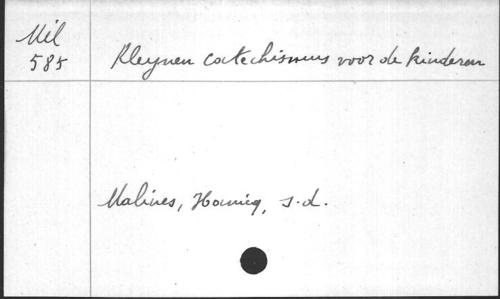 Mil
585
Kleynen catechismus voor de kinderen
Malines, Hanicq, s.d.